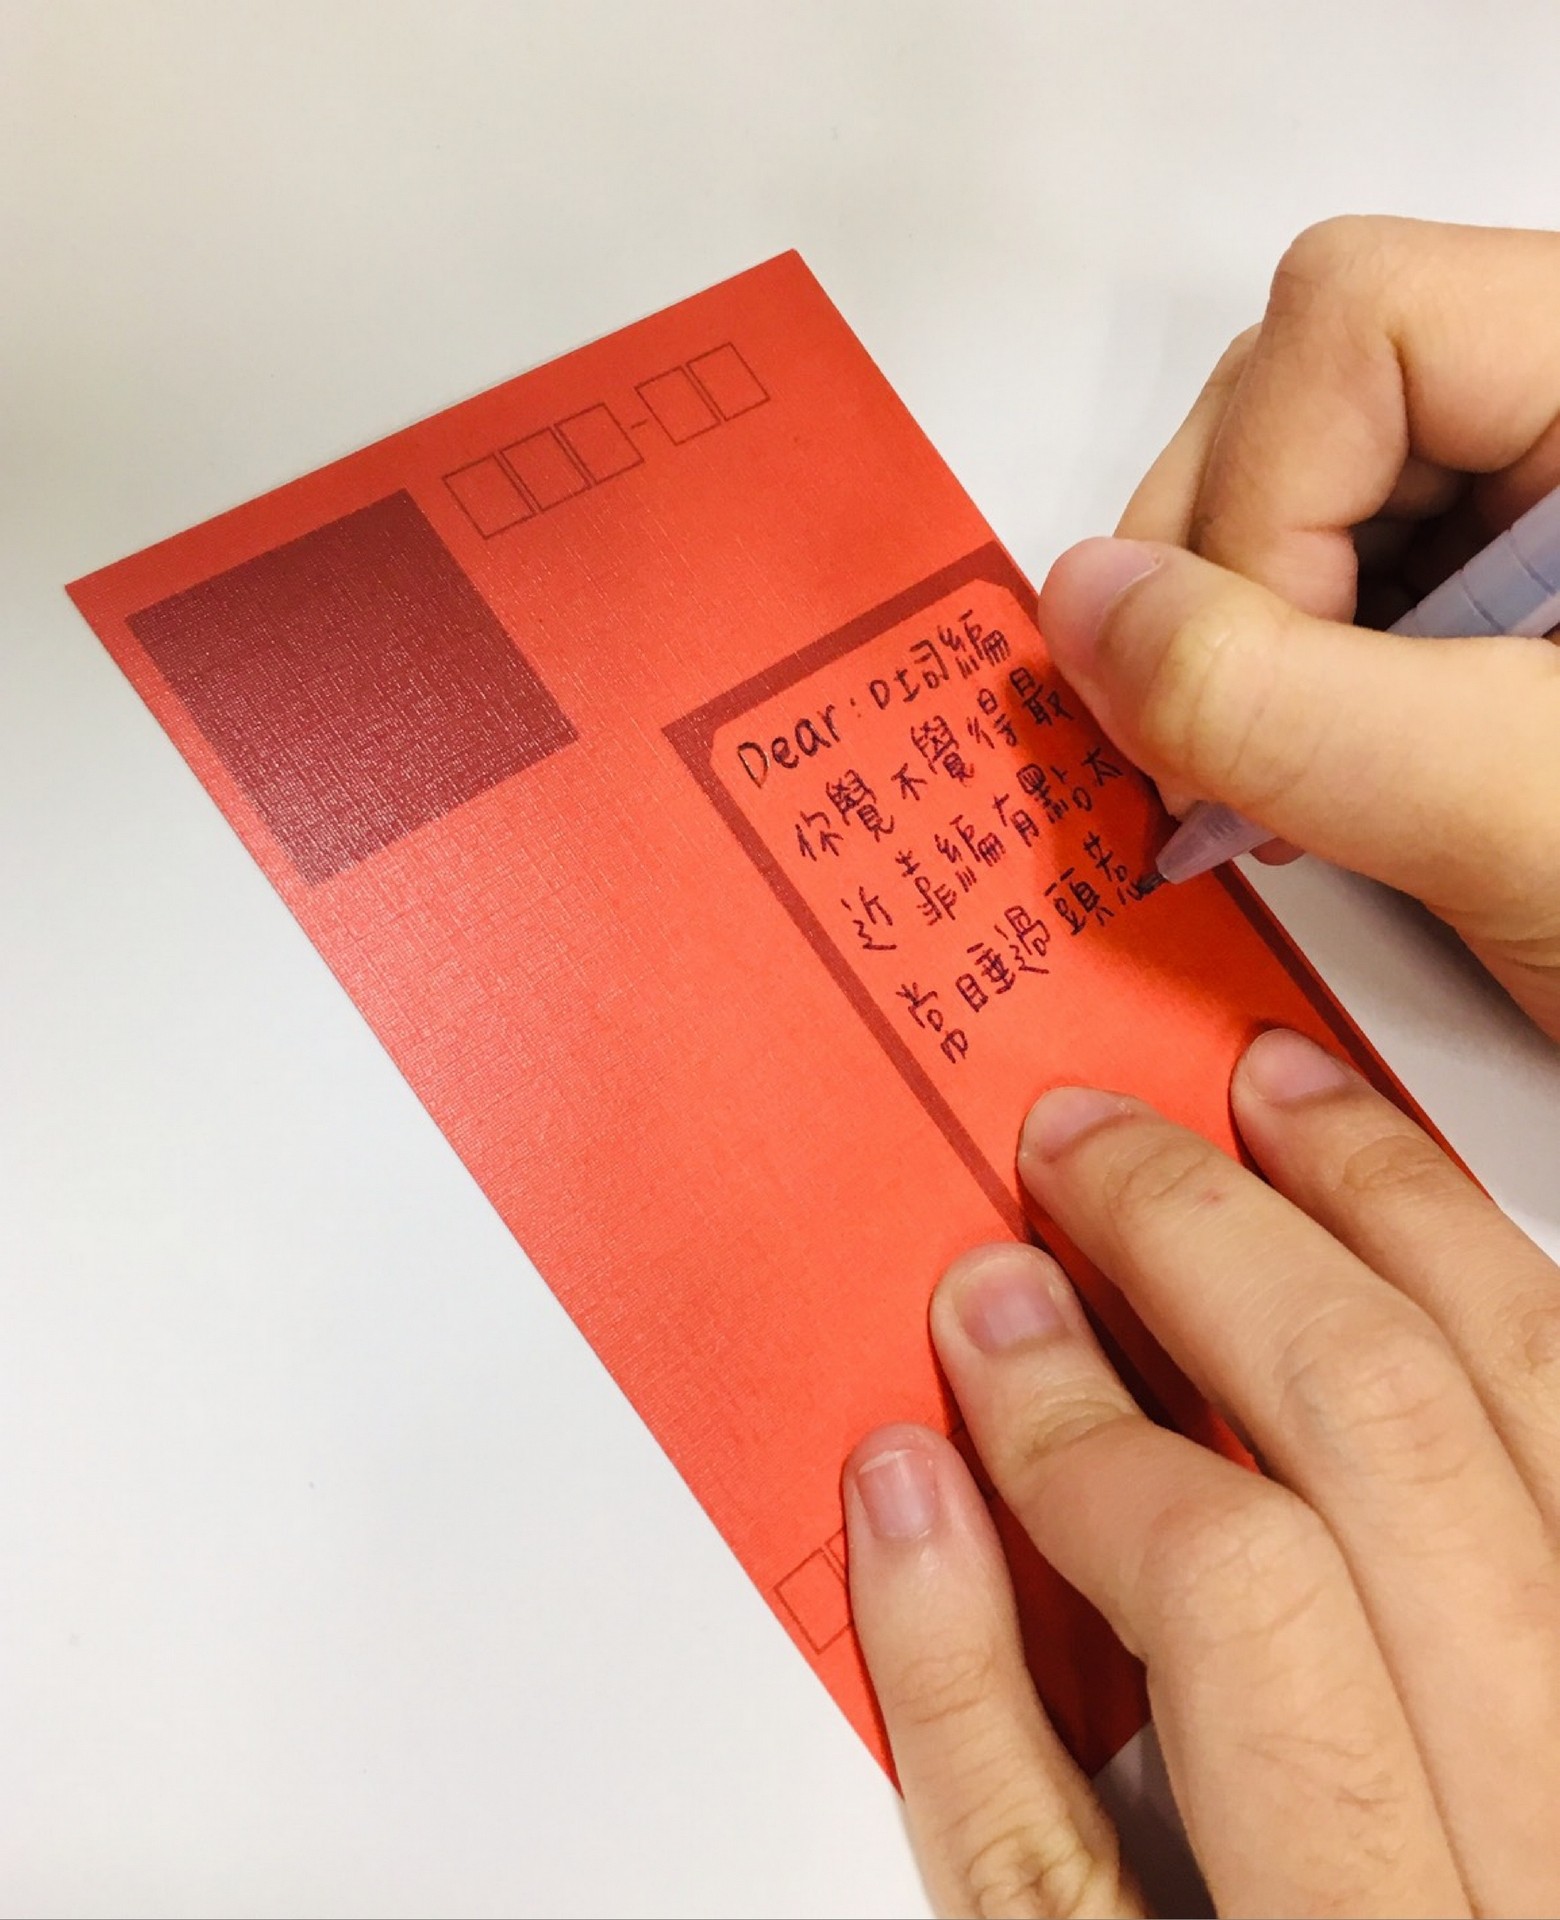 Dear:吐司編
你覺不覺得最
近靠編有點太
常睡過頭惹